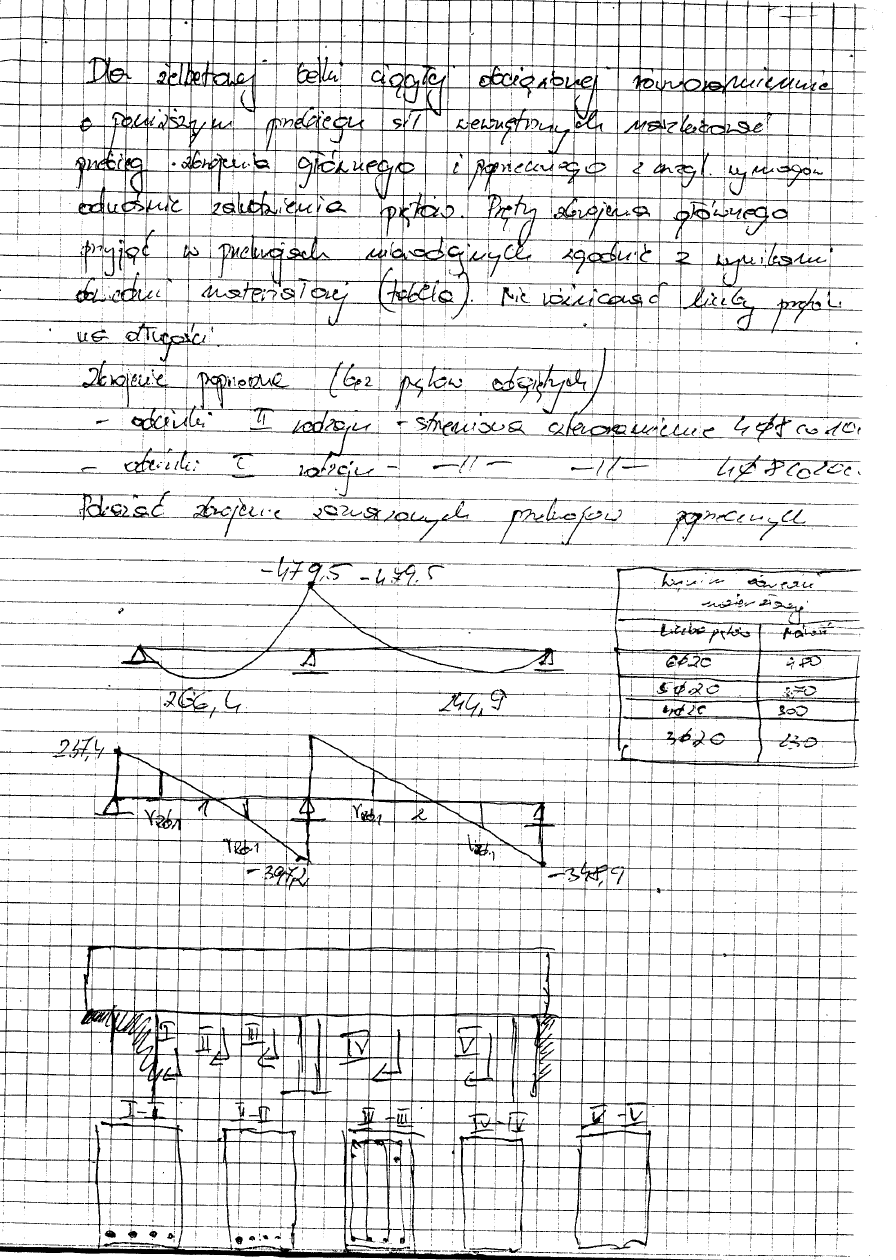 Dla żelbetowej belki ciągłej obciążonej równomiernie
o poniższym przebiegu sił wewnętrznych naszkicować
przebieg zbrojenia głównego i poprzecznego z uwzgl. wymogów
odnośnie zakotwienia prętów. Pręty zbrojenia głównego
przyjąć w przekrojach miarodajnych zgodnie z wynikami
obwiedni materiałowej (tabela). Nie różnicować liczby prętów
na długości.
Zbrojenie poprzeczne (bez prętów odgiętych)
- odcinki II rodzaju - strzemiona czteroramienne 4ϕ8 co 10
- odcinki I rodzaju - -//- -//- 4ϕ8 co 20
Pokazać zbrojenie zaznaczonych przekrojów poprzecznych
-479.5 -479.5
266,4 244,9
obwiedni
materiałowej
Liczba prętów Nośność
6ϕ20 480
5ϕ20 370
4ϕ20 300
3ϕ20 230
247,4
1 2
-397,2 -348,9
I II III IV V
I-I II-II III-III IV-IV V-V